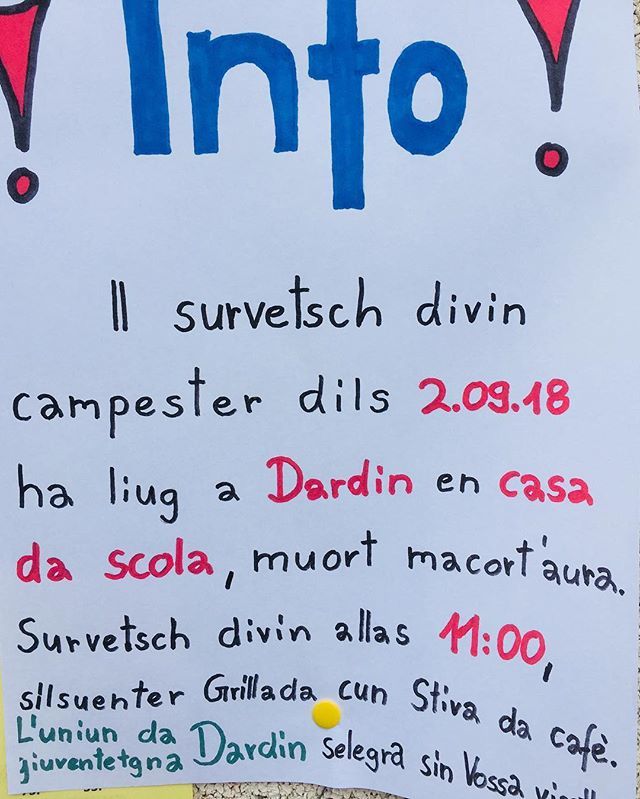 ! Info !
Il survetsch divin
campester dils 2.09.18
ha liug a Dardin en casa
da scola, muort macort'aura.
Survetsch divin allas 11:00,
silsuenter Grillada cun Stiva da cafè.
L'uniun da
giuventetgna Dardin selegra sin Vossa